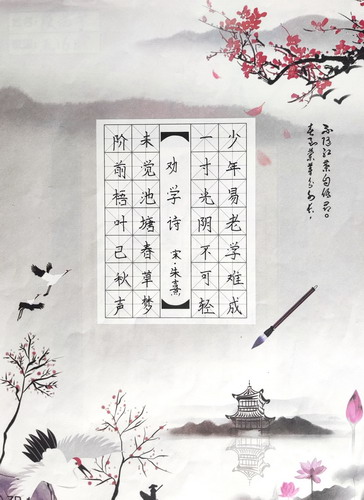 少年易老学难成
一寸光阴不可轻
劝学诗
宋·朱熹
未觉池塘春草梦
阶前梧叶已秋声